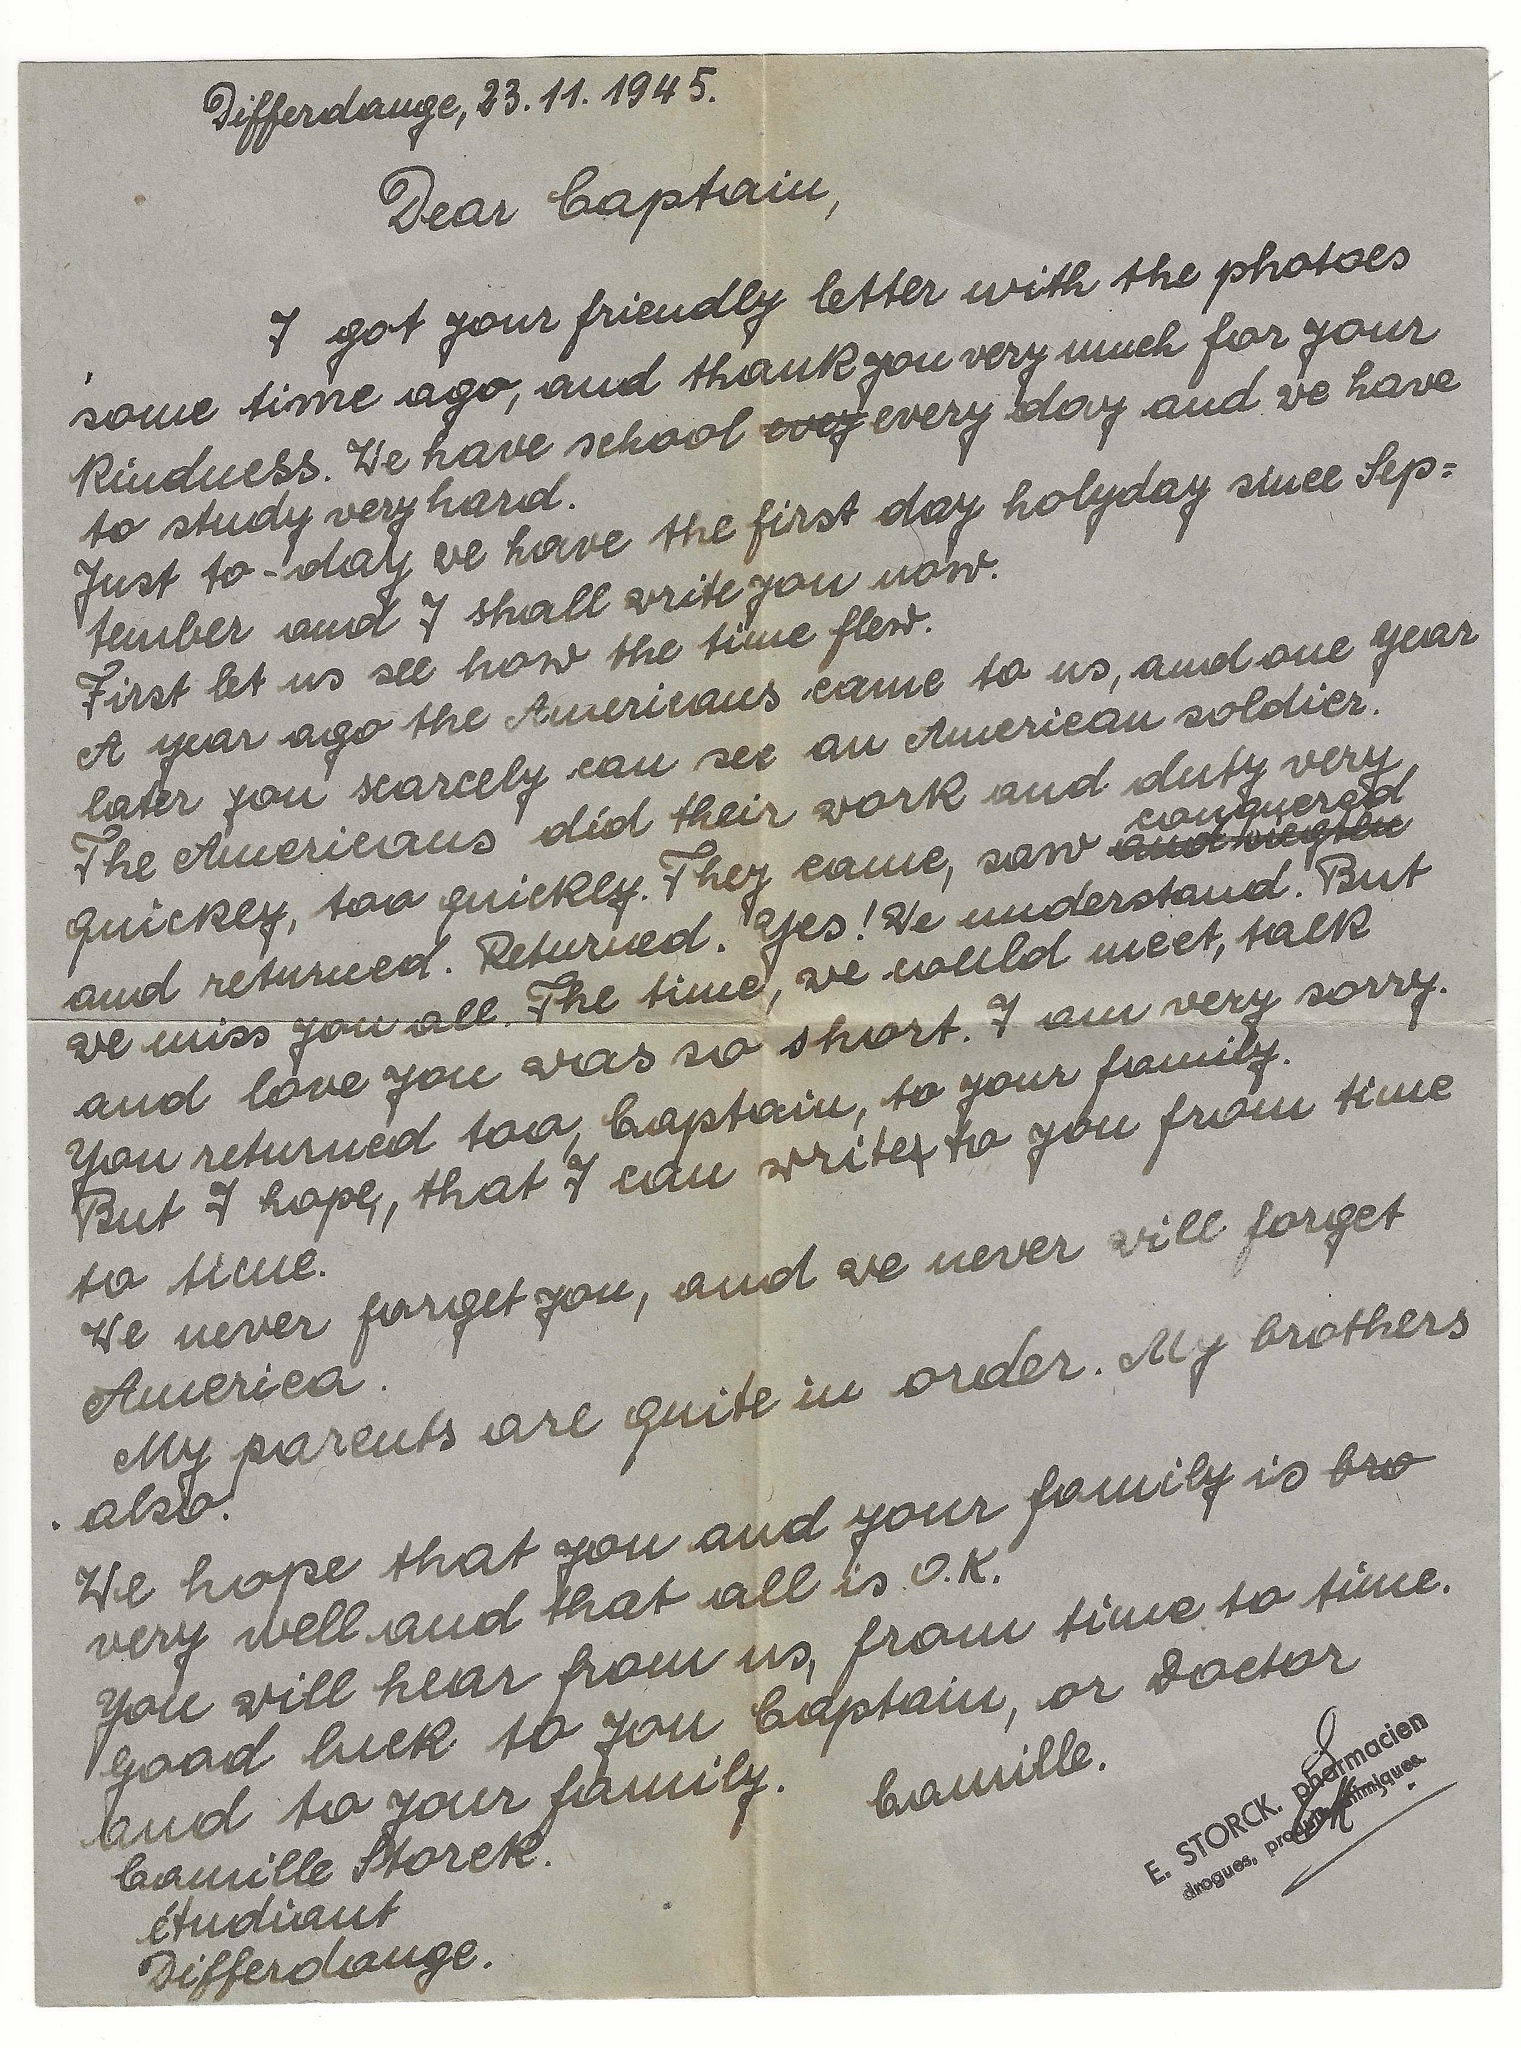 Differdange, 23.11.1945.
Dear Captain,
I got your friendly letter with the photoes
some time ago, and thank you very much for your
kindness. We have school evey every day and we have
to study very hard.
Just to-day we have the first day holyday since Sep=
tember and I shall write you now.
First let us see how the time flew.
A year ago the Americans came to us, and one year
later you scarcely can see an American soldier.
The Americans did their work and duty very
quickly, too quickly. They came, saw and conquered
and returned. Returned. Yes! We understand. But
we miss you all. The time, we would meet, talk
and love you was so short. I am very sorry.
You returned too, Captain, to your family.
But I hope, that I can write to you from time
to time.
We never forget you, and we never will forget
America.
My parents are quite in order. My brothers
also.
We hope that you and your family is bro
very well and that all is O.K.
You will hear from us, from time to time.
Good luck to you Captain, or Doctor
and to your family. Camille.
Camille Storck.
étudiant
Differdange.
E. STORCK. pharmacien
drogues, produits chimiques.